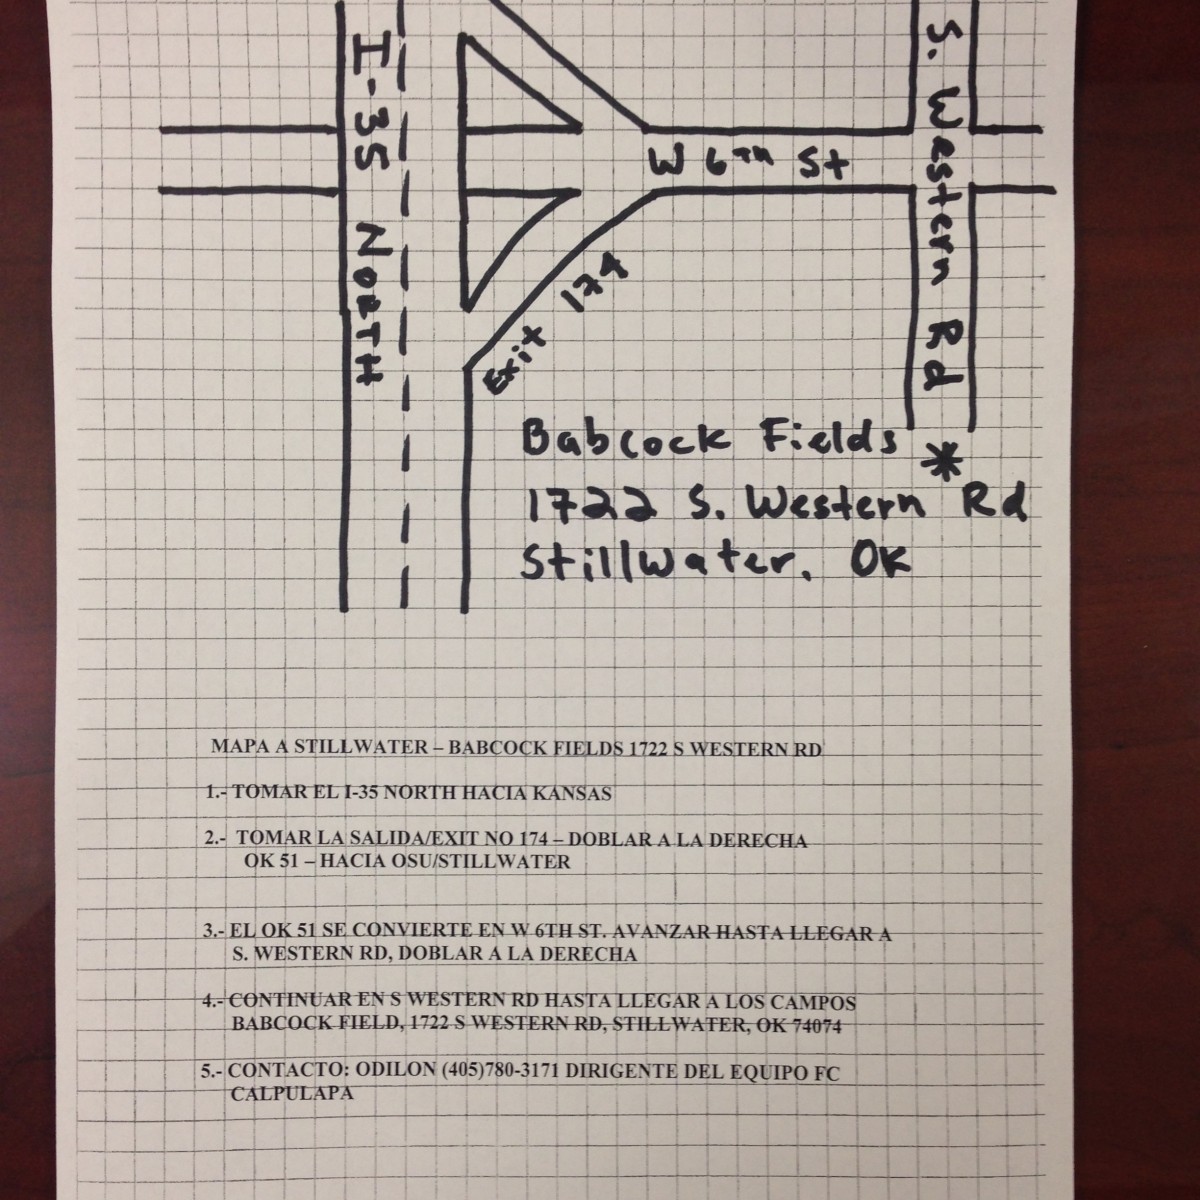 I-35 NORTH
W 6TH St
S. Western Rd
Exit 174
Babcock Fields
1722 S. Western Rd
Stillwater, OK
MAPA A STILLWATER – BABCOCK FIELDS 1722 S WESTERN RD
1.- TOMAR EL I-35 NORTH HACIA KANSAS
2.- TOMAR LA SALIDA/EXIT NO 174 – DOBLAR A LA DERECHA
OK 51 – HACIA OSU/STILLWATER
3.- EL OK 51 SE CONVIERTE EN W 6TH ST. AVANZAR HASTA LLEGAR A
S. WESTERN RD, DOBLAR A LA DERECHA
4.- CONTINUAR EN S WESTERN RD HASTA LLEGAR A LOS CAMPOS
BABCOCK FIELD, 1722 S WESTERN RD, STILLWATER, OK 74074
5.- CONTACTO: ODILON (405)780-3171 DIRIGENTE DEL EQUIPO FC
CALPULAPA